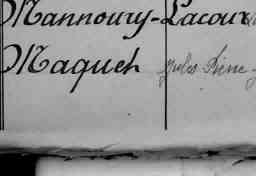 Mannoury-Lacour
Maquet Jules Pierre